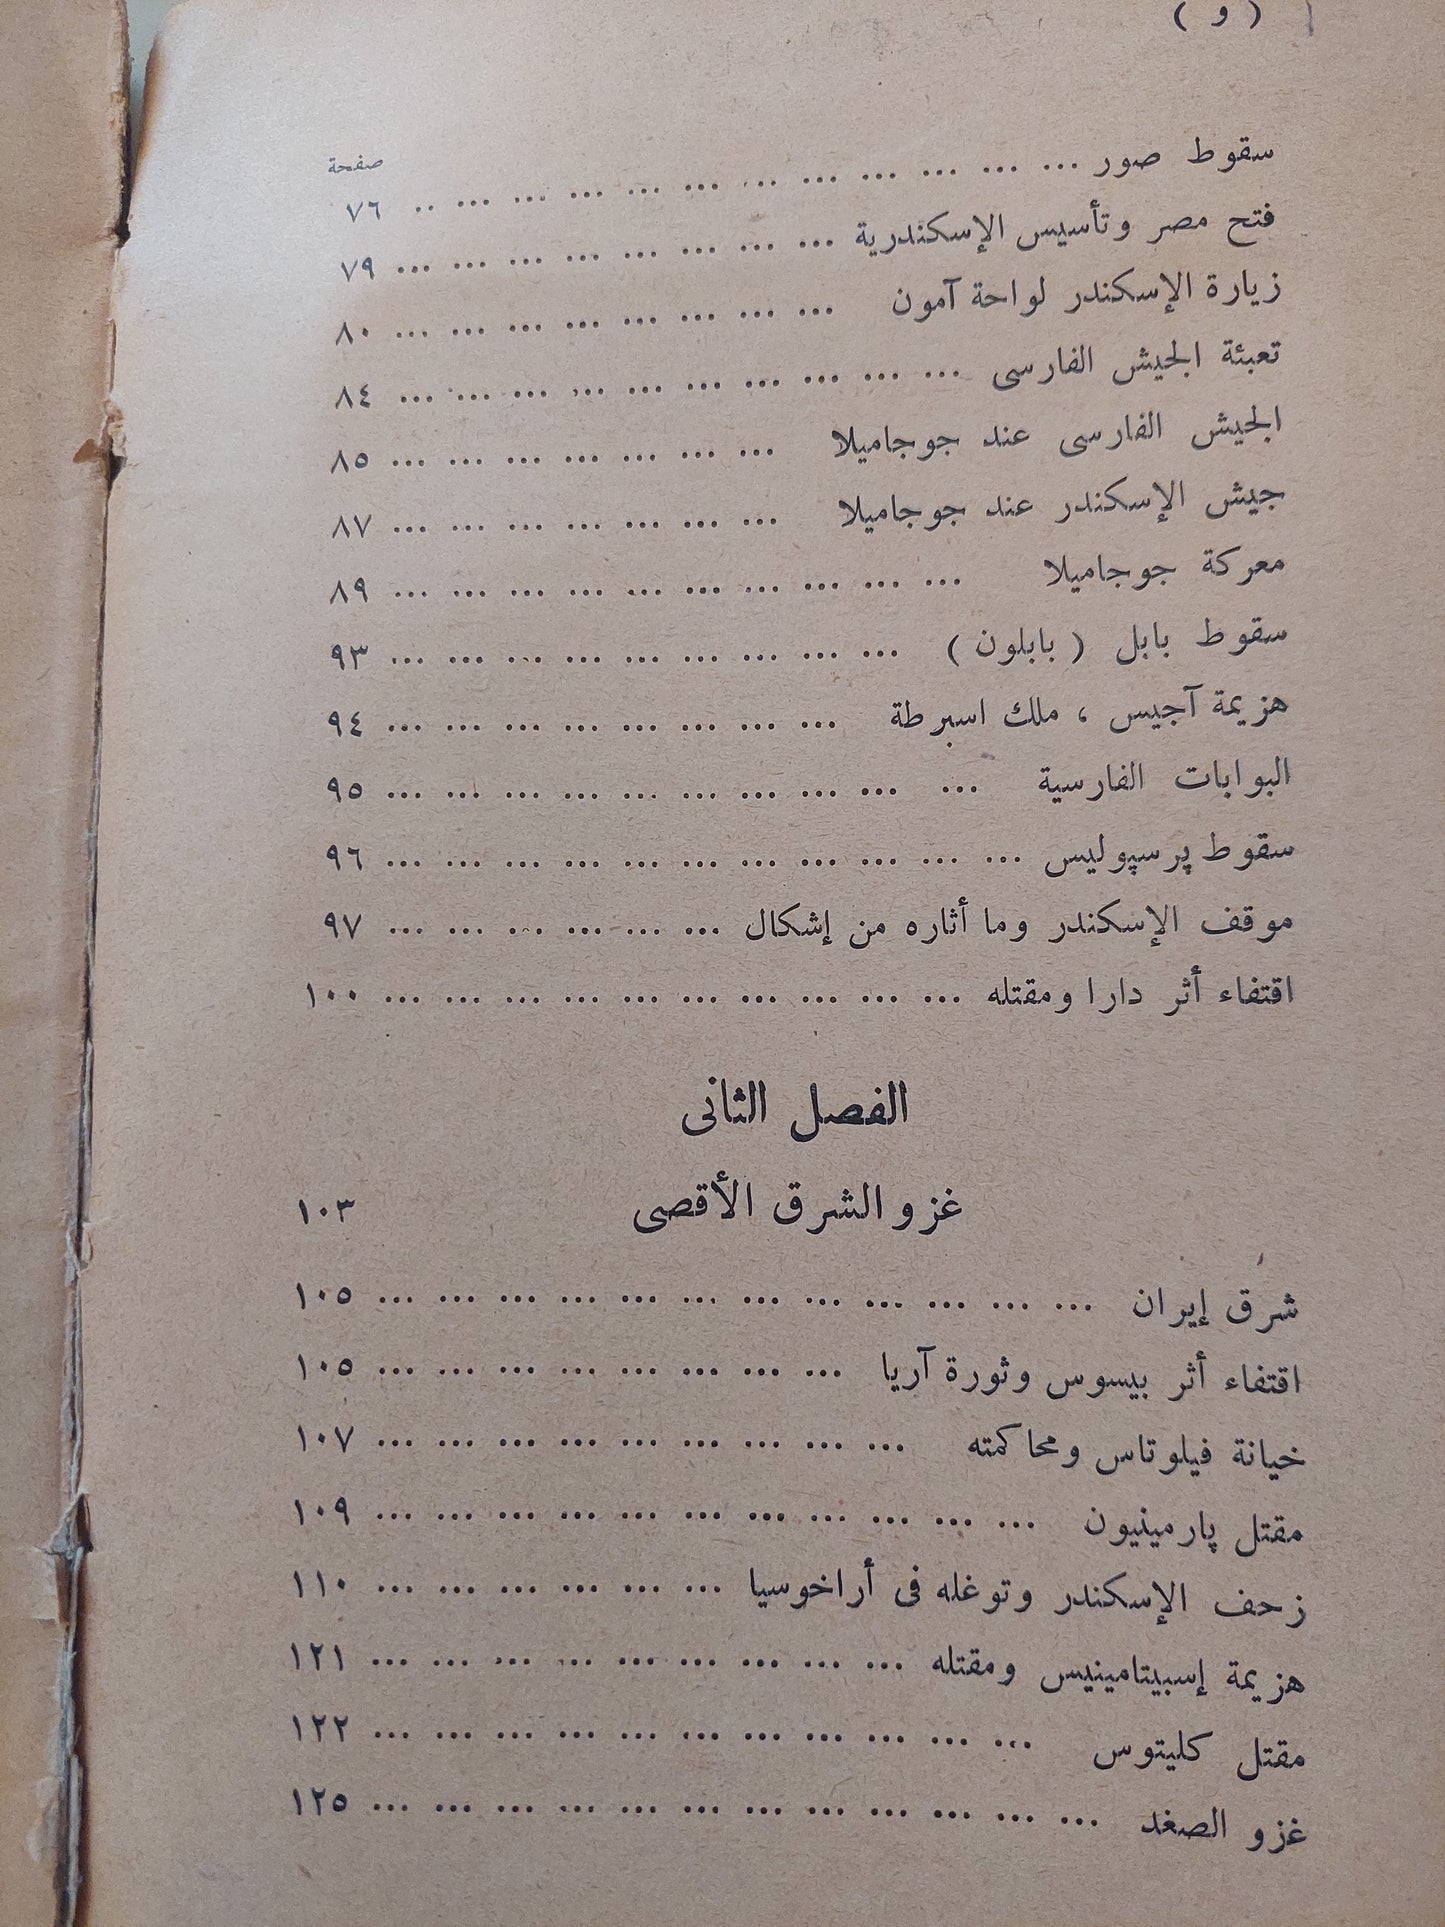 ( و )
صفحة
سقوط صور ... ... ... ... ... ... ... ... ... ... ... ... ٧٦
فتح مصر وتأسيس الإسكندرية ... ... ... ... ... ... ... ... ٧٩
زيارة الإسكندر لواحة آمون ... ... ... ... ... ... ... ... ٨٠
تعبئة الجيش الفارسى ... ... ... ... ... ... ... ... ... ... ٨٤
الجيش الفارسى عند جوجاميلا ... ... ... ... ... ... ... ٨٥
جيش الإسكندر عند جوجاميلا ... ... ... ... ... ... ... ٨٧
معركة جوجاميلا ... ... ... ... ... ... ... ... ... ... ٨٩
سقوط بابل ( بابلون ) ... ... ... ... ... ... ... ... ... ٩٣
هزيمة آجيس ، ملك اسبرطة ... ... ... ... ... ... ... ... ٩٤
البوابات الفارسية ... ... ... ... ... ... ... ... ... ... ٩٥
سقوط پرسپوليس ... ... ... ... ... ... ... ... ... ... ... ٩٦
موقف الإسكندر وما أثاره من إشكال ... ... ... ... ... ... ٩٧
اقتفاء أثر دارا ومقتله ... ... ... ... ... ... ... ... ... ... ١٠٠
الفصل الثانى
غزو الشرق الأقصى ١٠٣
شرق إيران ... ... ... ... ... ... ... ... ... ... ... ... ١٠٥
اقتفاء أثر بيسوس وثورة آريا ... ... ... ... ... ... ... ... ١٠٥
خيانة فيلوتاس ومحاكمته ... ... ... ... ... ... ... ... ... ١٠٧
مقتل پارمينيون ... ... ... ... ... ... ... ... ... ... ... ١٠٩
زحف الإسكندر وتوغله فى أراخوسيا ... ... ... ... ... ... ١١٠
هزيمة إسبيتامينيس ومقتله ... ... ... ... ... ... ... ... ... ١٢١
مقتل كليتوس ... ... ... ... ... ... ... ... ... ... ... ١٢٢
غزو الصغد ... ... ... ... ... ... ... ... ... ... ... ... ١٢٥